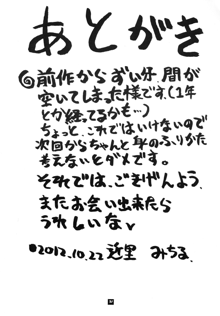 あとがき
◎前作からずい分、間が
空いてしまった様です。(1年
とか経ってるかも…)
ちょっと、これではいけないので
次回からちゃんと身のふりかた
考えないとダメです。
それでは、ごきげんよう。
またお会い出来たら
うれしいな
●2012.10.22 みちる.